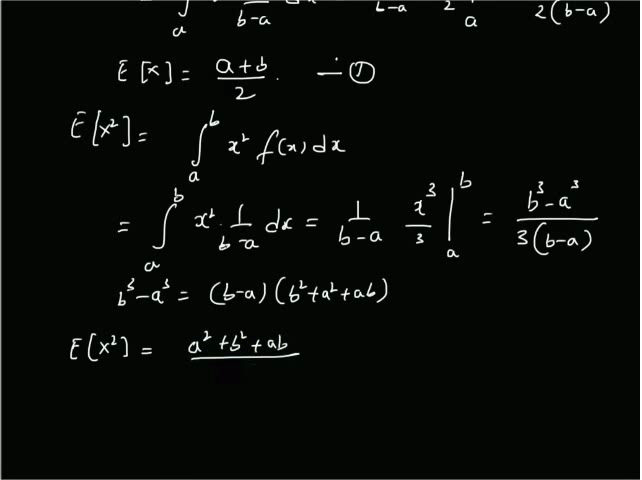 a b-a b-a 2 a 2(b-a)
E[x] = a+b/2 . — ①
E[x²] = ∫_a^b x² f(x) dx
= ∫_a^b x² · 1/(b-a) dx = 1/(b-a) x³/3 |_a^b = b³-a³/3(b-a)
b³-a³ = (b-a)(b²+a²+ab)
E[x²] = a²+b²+ab